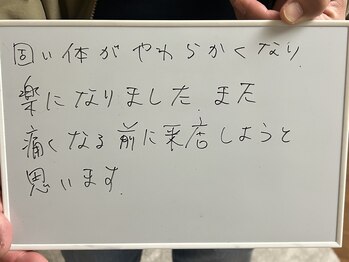 固い体がやわらかくなり
楽になりました。また
痛くなる前に来店しようと
思います。